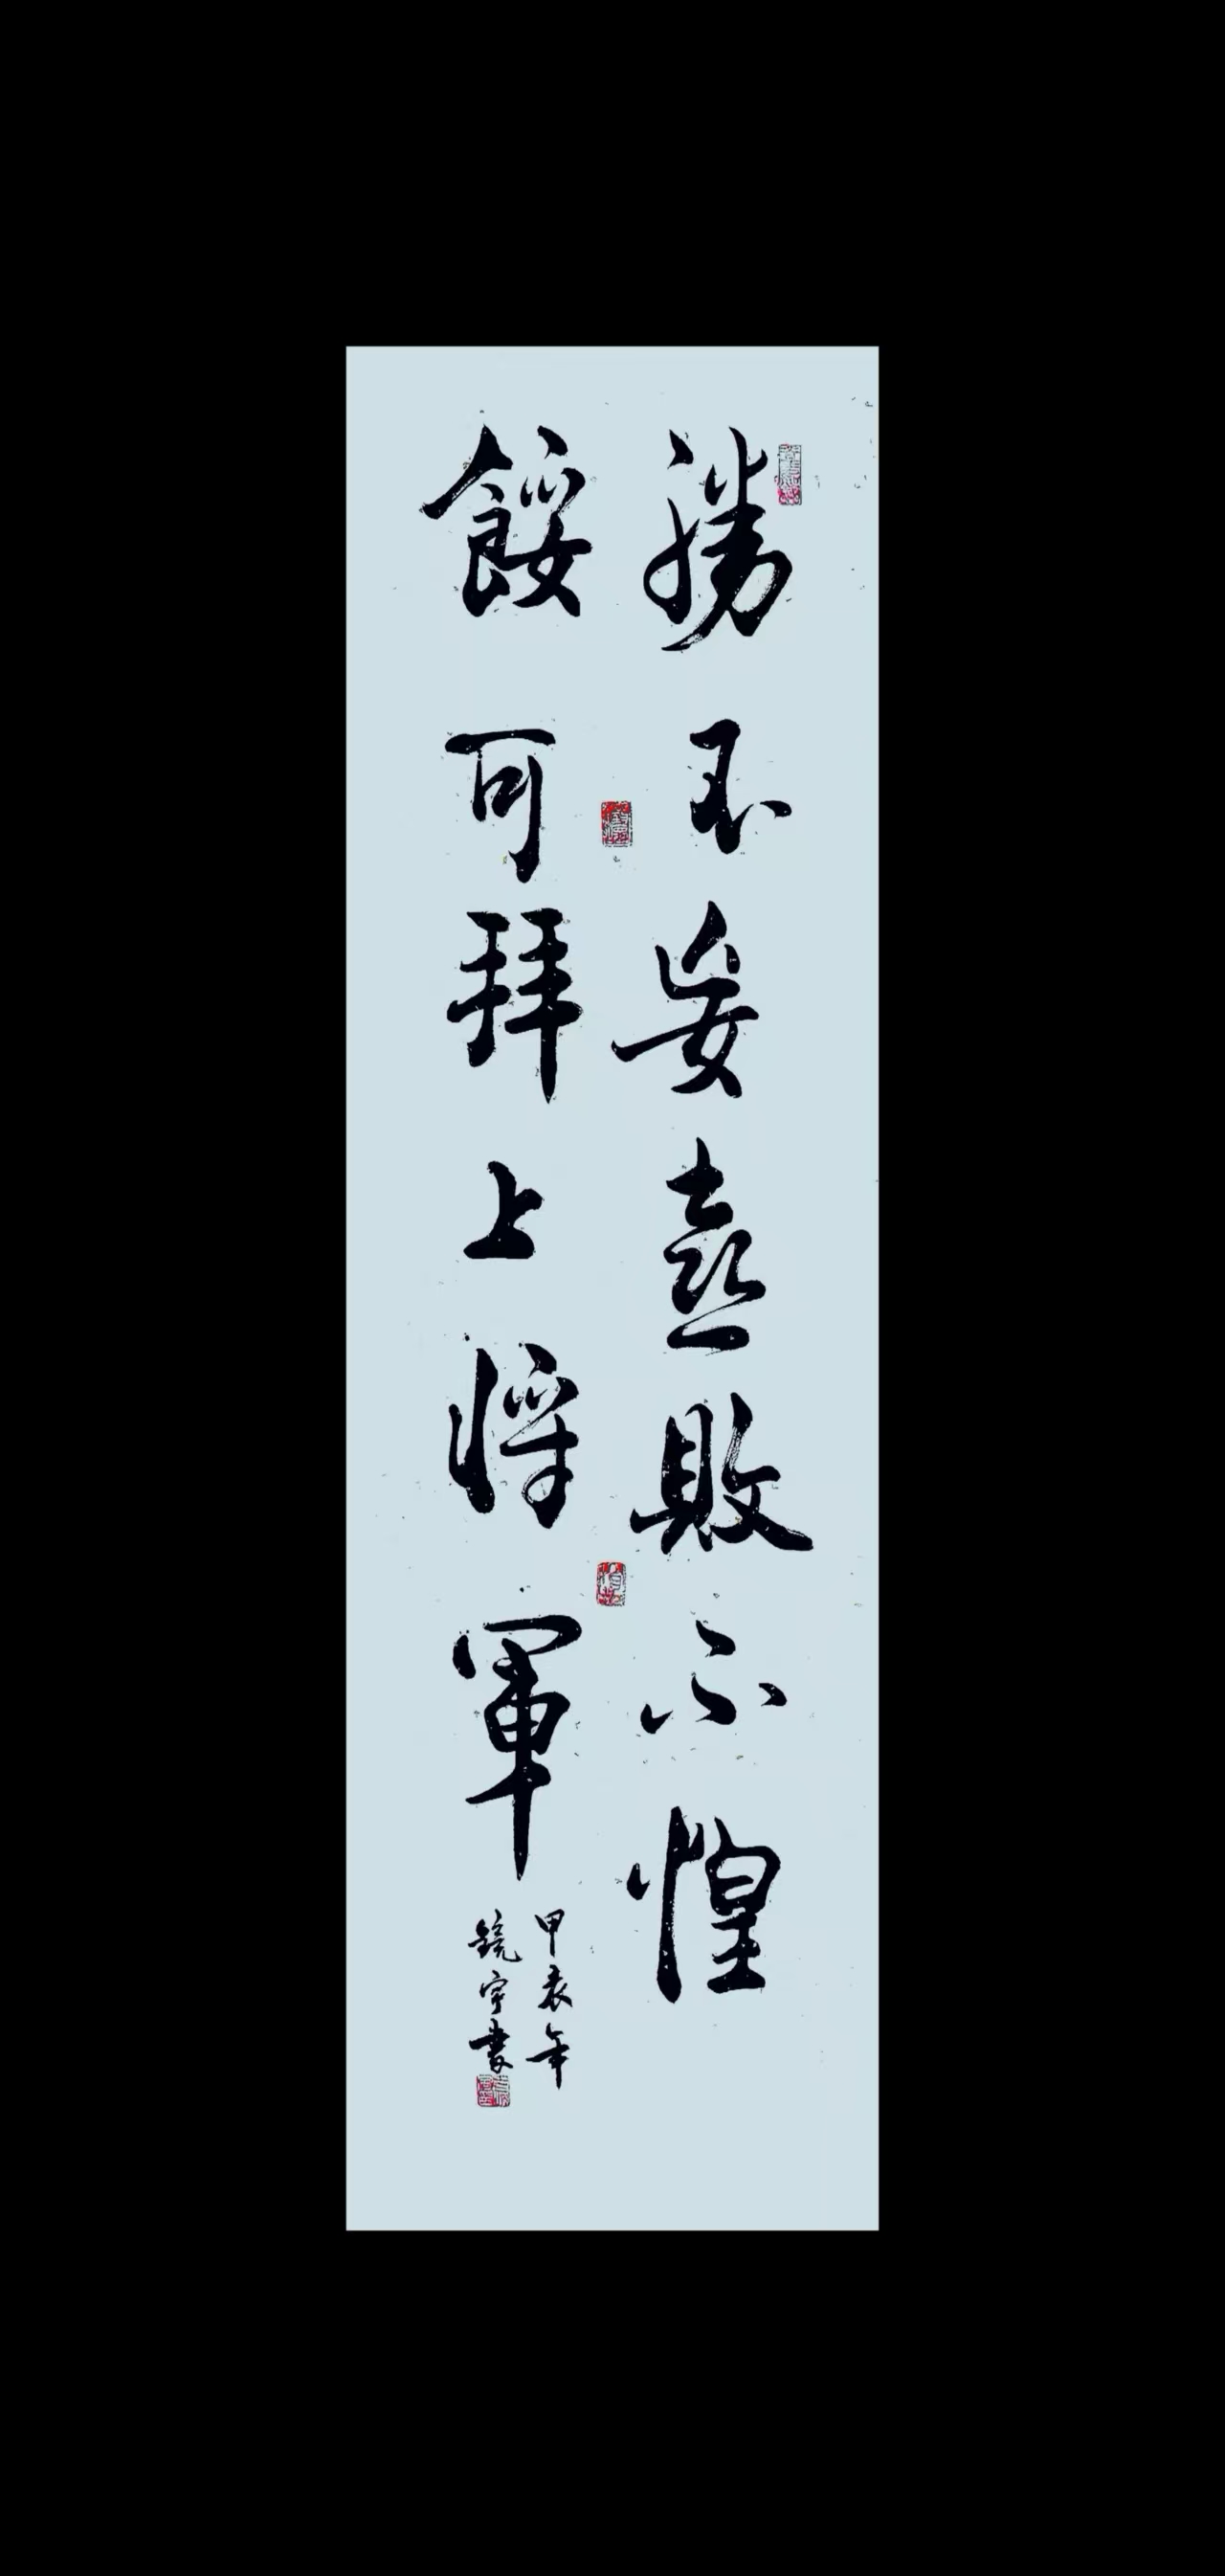 勝不妄喜敗不惶
餒可拜上將軍
甲辰年
鏡宇書